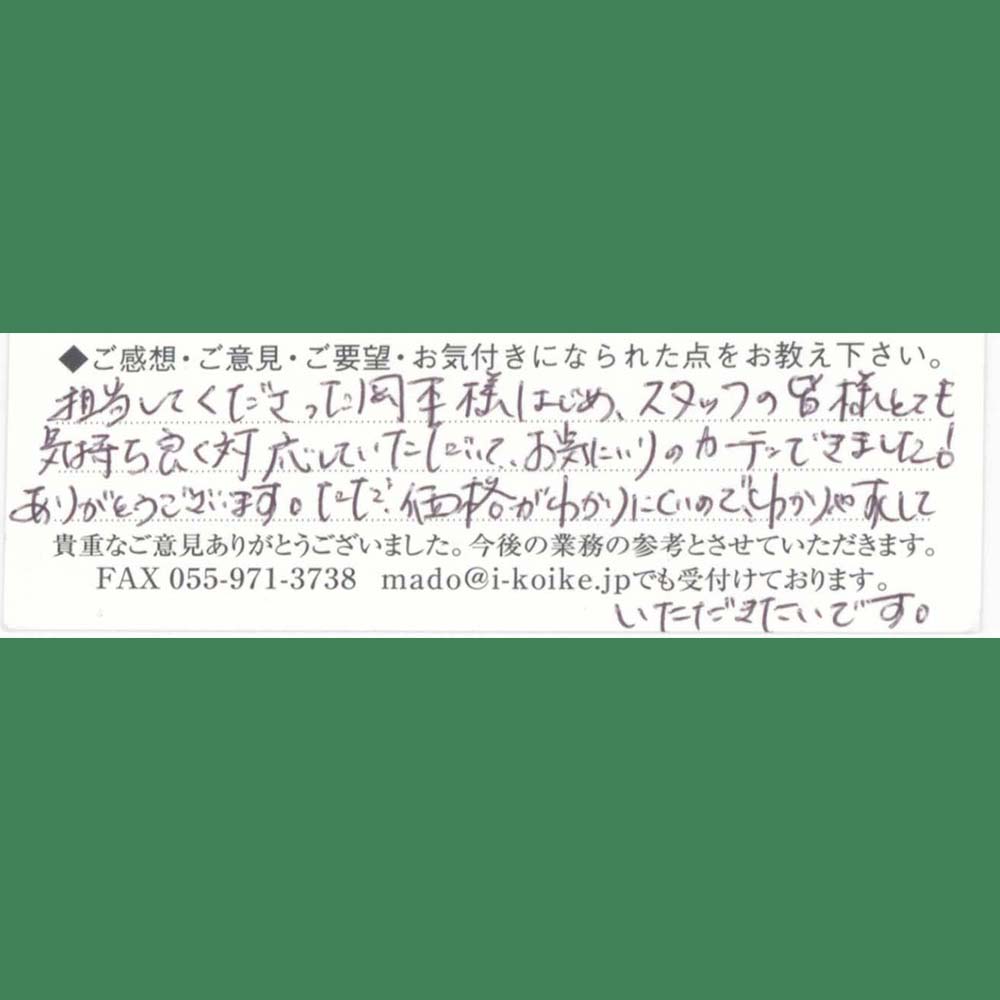 ◆ご感想・ご意見・ご要望・お気付きになられた点をお教え下さい。
担当してくださった岡本様はじめ、スタッフの皆様とても
気持ち良く対応していただいて、お気にいりのカーテンできました!
ありがとうございます。ただ、価格がわかりにくいので、わかりやすくして
貴重なご意見ありがとうございました。今後の業務の参考とさせていただきます。
FAX 055-971-3738 mado@i-koike.jpでも受付けております。
いただきたいです。